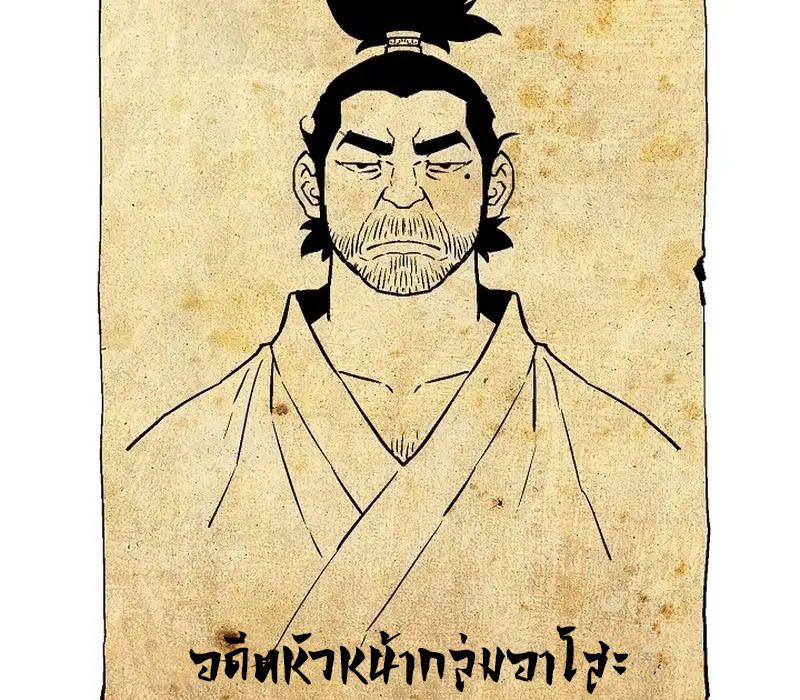 อดีตหัวหน้ากลุ่มอาโสะ